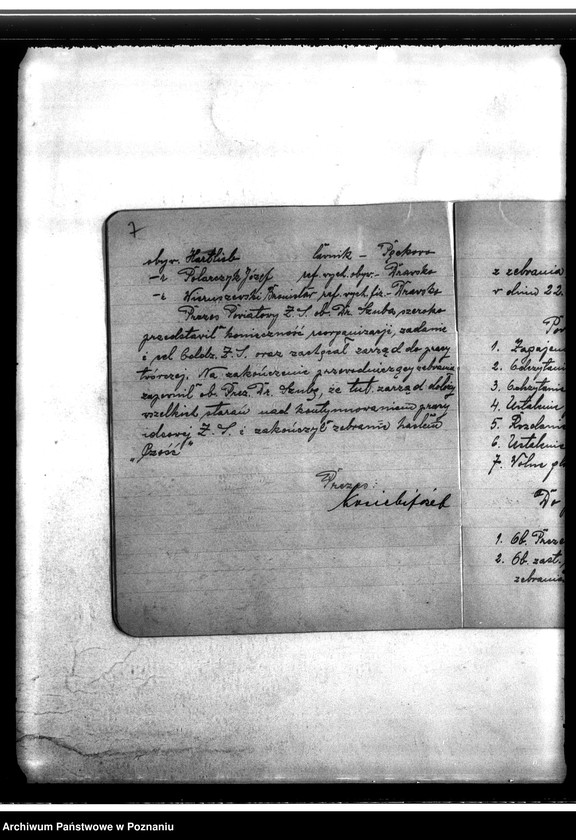 7
obyw. Hartlieb ławnik – Pęckowo
–„ Polarczyk Józef ref. wych. obyw. – Drawsko
–„ Wieruszewski Bronisław ref. wych. fiz. – Drawsko
Prezes Powiatowy Z. S. ob. Dr. Szuba, szeroko
przedstawił konieczność reorganizacji, zadanie
i cel Oddz. Z. S. oraz zachęcał zarząd do pracy
twórczej. Na zakończenie przewodniczący zebrania
zapewnił ob. Prez. Dr. Szubę, że tut. zarząd dołoży
wszelkich starań nad kontynuowaniem pracy
ideowej Z. S. i zakończył zebranie hasłem
„Cześć"
Prezes:
z zebrania
w dniu 22.
1. Zagajen
2. Odczytan
3. Odczytanie
4. Ustalenie
5.
6. Ustalenie
7. Wolne gł
1. Ob. Preze
2. Ob. zast.
zebrania
Archiwum Państwowe w Poznaniu